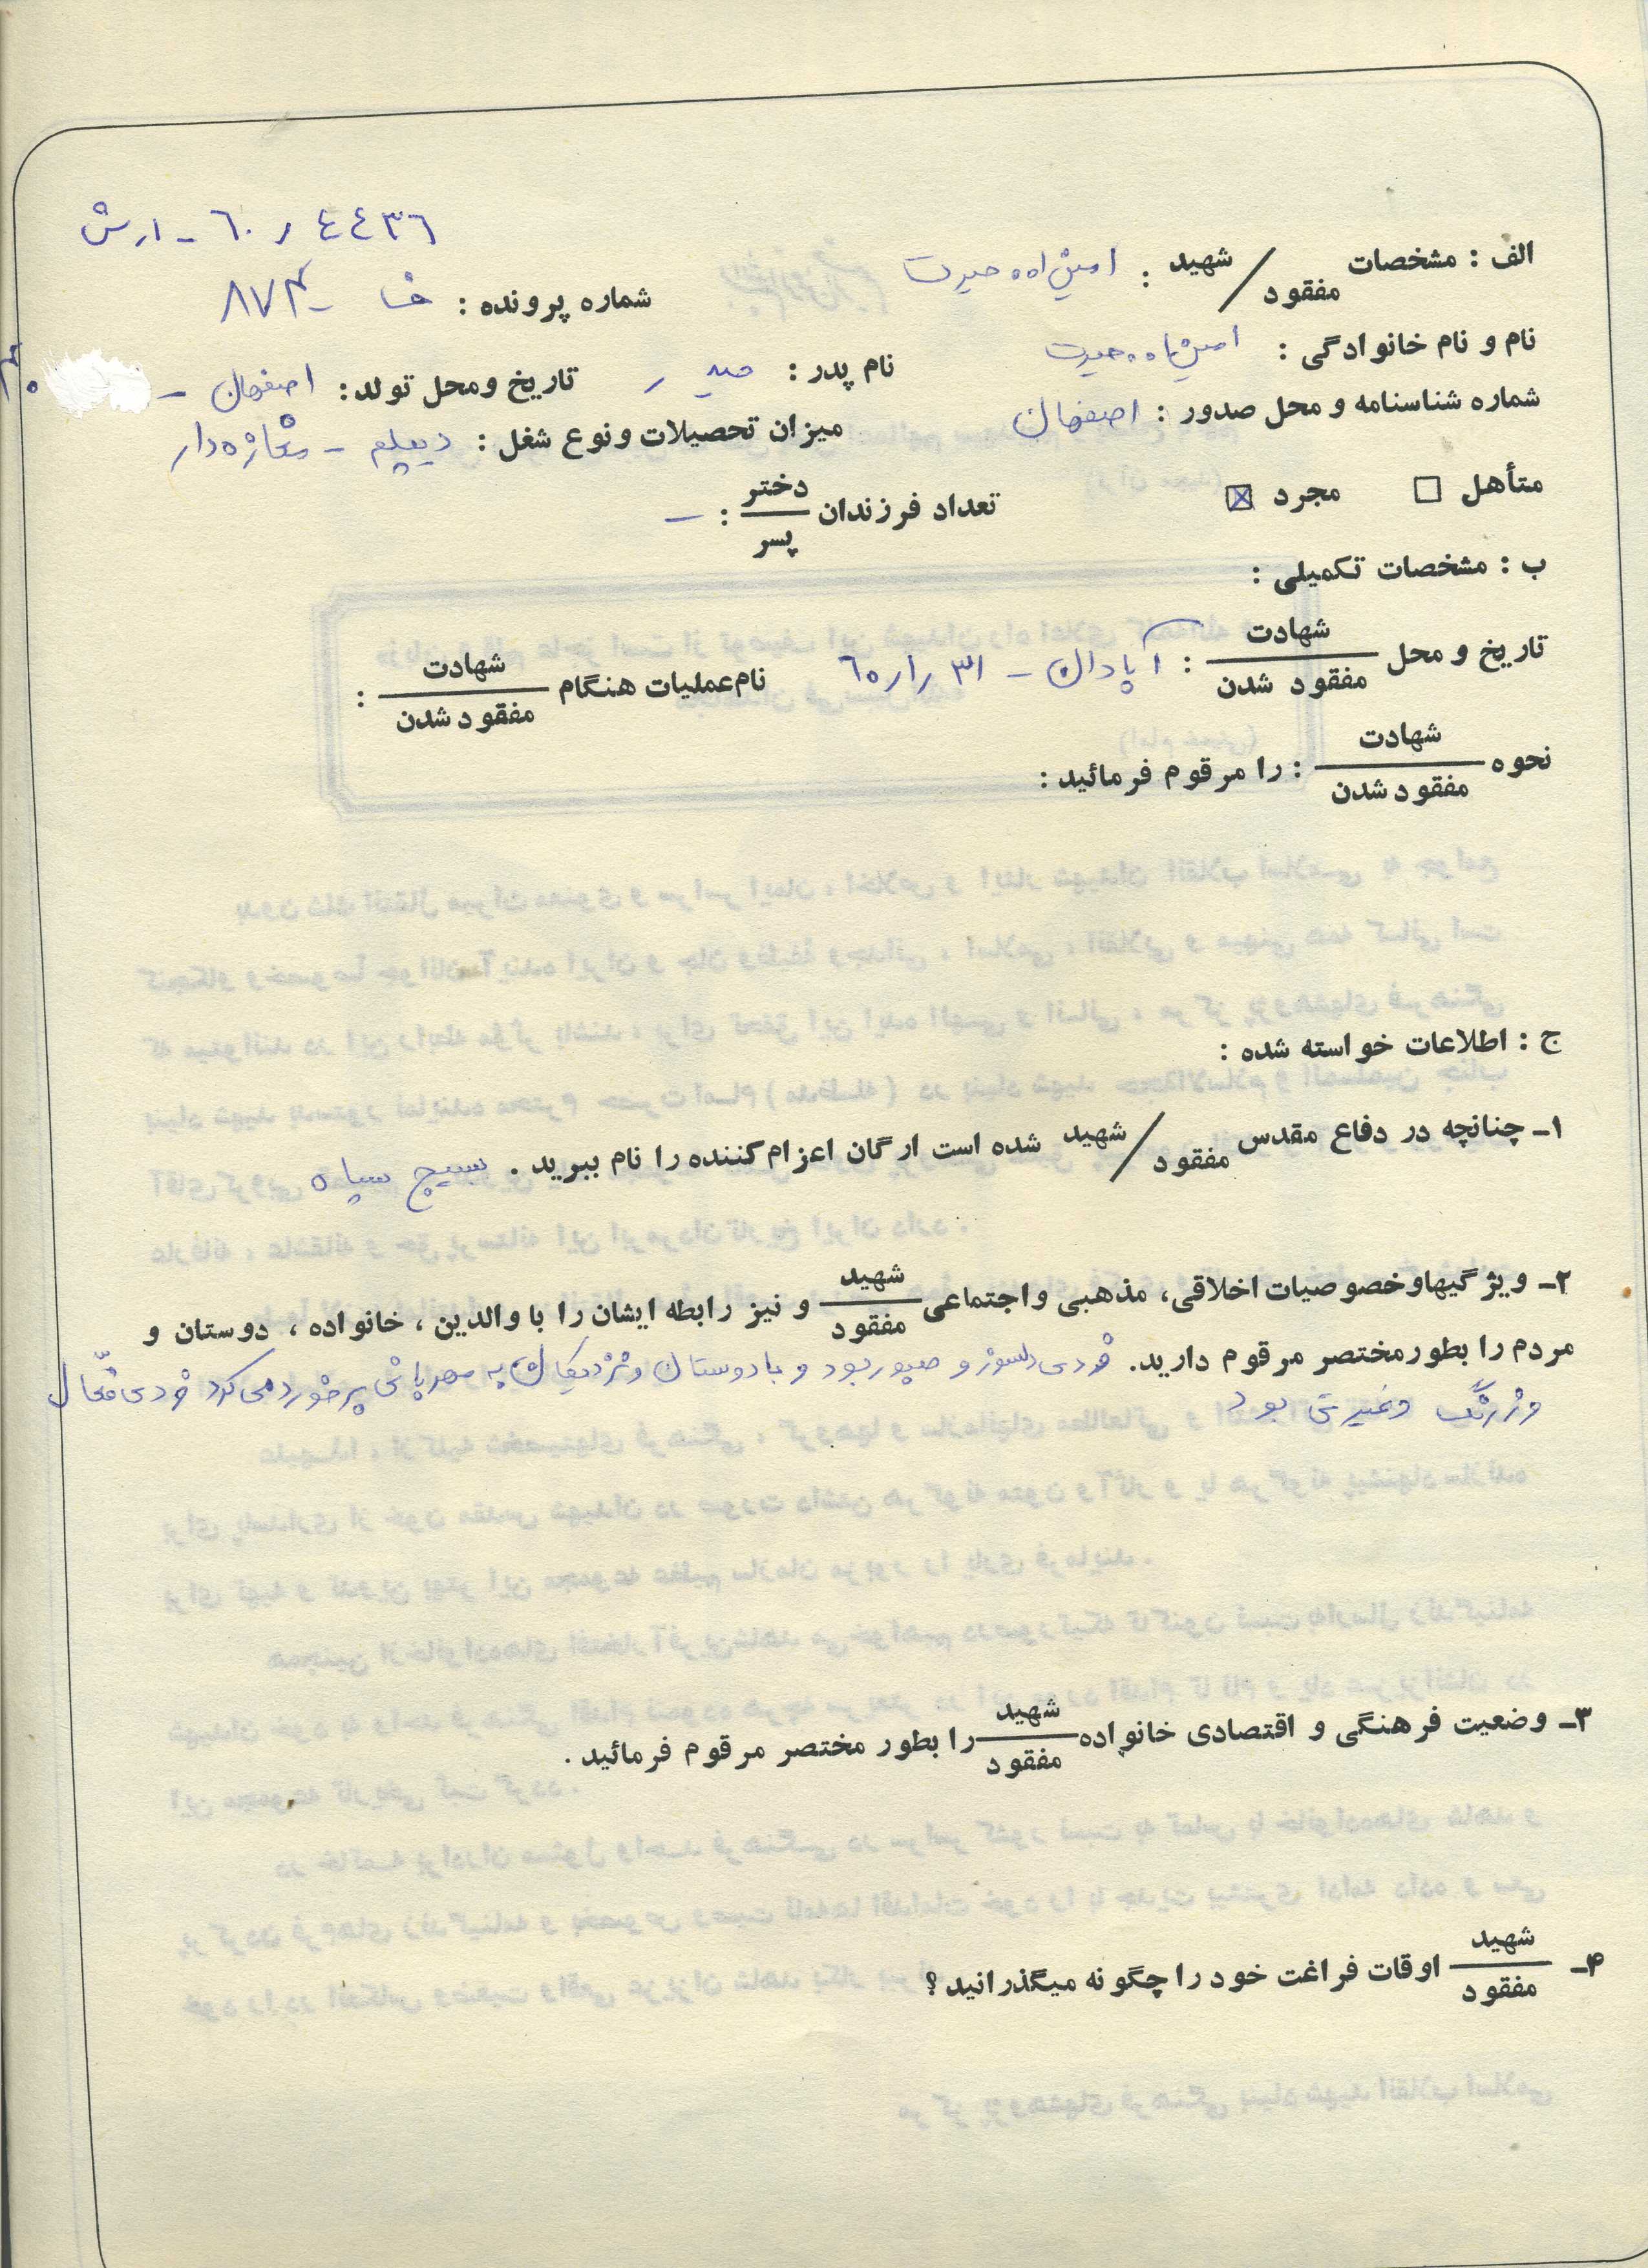 ٤٤٣٦ ر ٦٠ - ارش
الف : مشخصات شهید / مفقود : امین اله حیرت
شماره پرونده : ف - ۸۷۴
نام و نام خانوادگی : امین اله حیرت نام پدر : حیدر تاریخ ومحل تولد : اصفهان - ۴۰
شماره شناسنامه و محل صدور : اصفهان میزان تحصیلات ونوع شغل : دیپلم - مغازه دار
متأهل ☐ مجرد ☒ تعداد فرزندان دختر / پسر : -
ب : مشخصات تکمیلی :
تاریخ و محل شهادت / مفقود شدن : آبادان - ۳۱ ر ۱ ر ٦٠ نام عملیات هنگام شهادت / مفقود شدن :
نحوه شهادت / مفقود شدن : را مرقوم فرمائید :
ج : اطلاعات خواسته شده :
۱ـ چنانچه در دفاع مقدس شهید / مفقود شده است ارگان اعزام کننده را نام ببرید . بسیج سپاه
۲ـ ویژگیهاوخصوصیات اخلاقی، مذهبی واجتماعی شهید / مفقود و نیز رابطه ایشان را با والدین ، خانواده ، دوستان و
مردم را بطورمختصر مرقوم دارید. فردی دلسوز و صبور بود و با دوستان و نزدیکان به مهربانی برخورد می کرد فردی فعّال
و زرنگ و غیرتی بود
۳ـ وضعیت فرهنگی و اقتصادی خانواده شهید / مفقود را بطور مختصر مرقوم فرمائید .
۴ـ شهید / مفقود اوقات فراغت خود را چگونه میگذرانید ؟